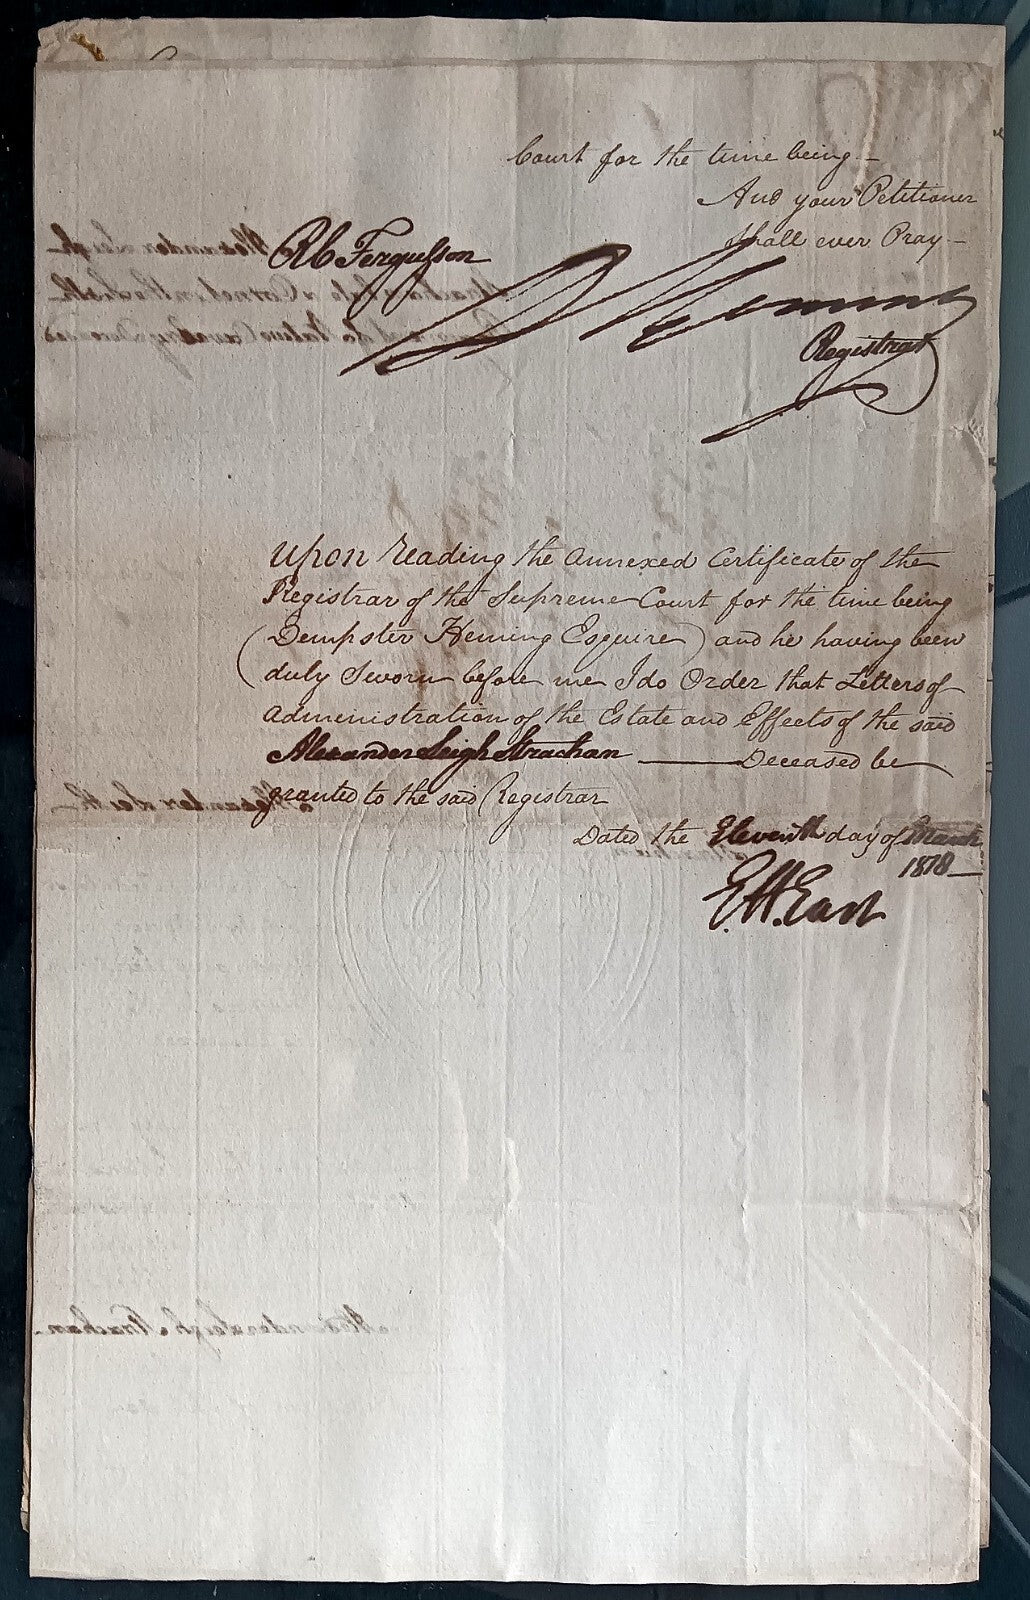 Court for the time being—
And your Petitioner
shall ever Pray—
Rb Fergusson
D Heming
Registrar
Upon reading the annexed Certificate of the
Registrar of the Supreme Court for the time being
(Dempster Heming Esquire) and he having been
duly Sworn before me I do Order that Letters of
Administration of the Estate and Effects of the said
Alexander Leigh Strachan ——— Deceased be
granted to the said Registrar
Dated the Eleventh day of March
1818—
E.H. East